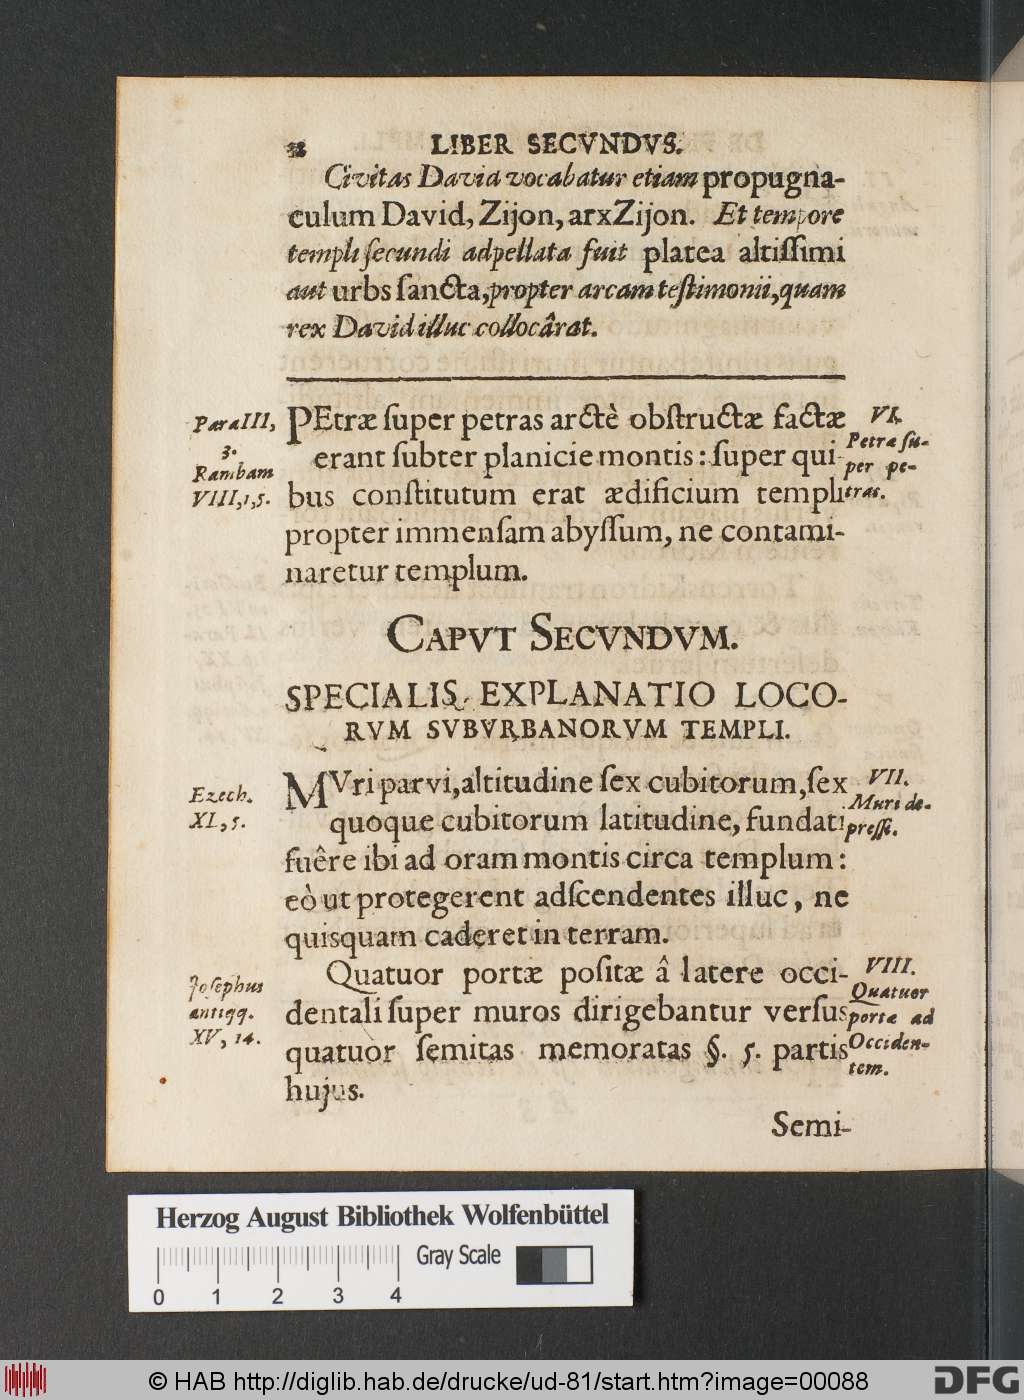 LIBER SECVNDVS.
Civitas David vocabatur etiam propugna-
culum David, Zijon, arx Zijon. Et tempore
templi ſecundi adpellata fuit platea altiſſimi
aut urbs ſancta, propter arcam teſtimonii, quam
rex David illuc collocârat.
Para III,
3.
Rambam
VIII,1,5.
PEtræ ſuper petras arctè obſtructæ factæ
erant ſubter planicie montis: ſuper qui-
bus conſtitutum erat ædificium templi
propter immenſam abyſſum, ne contami-
naretur templum.
VI.
Petræ ſu-
per pe-
tras.
CAPVT SECVNDVM.
SPECIALIS EXPLANATIO LOCO-
RVM SVBVRBANORVM TEMPLI.
Ezech.
XL, 5.
MVri parvi, altitudine ſex cubitorum, ſex
quoque cubitorum latitudine, fundati
fuêre ibi ad oram montis circa templum:
eò ut protegerent adſcendentes illuc, ne
quisquam caderet in terram.
VII.
Muri de-
preſſi.
Joſephus
antiqq.
XV, 14.
Quatuor portæ poſitæ â latere occi-
dentali ſuper muros dirigebantur verſus
quatuor ſemitas memoratas §. 5. partis
hujus.
VIII.
Quatuor
portæ ad
Occiden-
tem.
Semi-
Herzog August Bibliothek Wolfenbüttel
Gray Scale
0 1 2 3 4
© HAB http://diglib.hab.de/drucke/ud-81/start.htm?image=00088
DFG